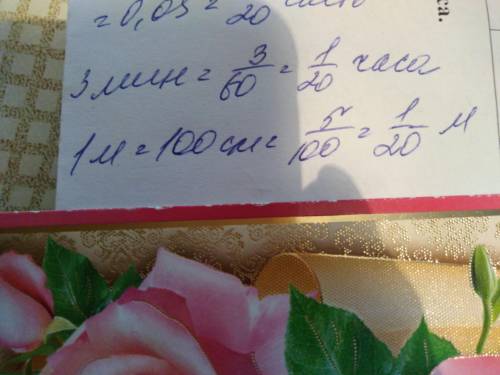 = 0,05 = 1/20
3 мин = 3/60 = 1/20 часа
1 м = 100 см = 5/100 = 1/20 м